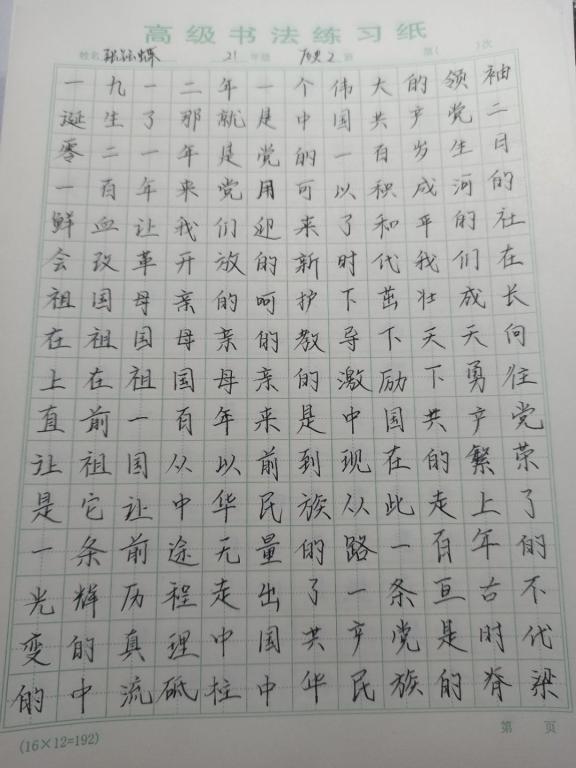 高级书法练习纸
姓名 21 年级 历史2 班 第( )次
一九一二年一个伟大的领袖
诞生了那就是中国共产党二
零二一年是党的一百岁生日
一百年来党用可以积成河的
鲜血让我们迎来了和平的社
会改革开放的新时代我们在
祖国母亲的呵护下茁壮成长
在祖国母亲的教导下天天向
上在祖国母亲的激励下勇往
直前一百年来是中国共产党
让祖国从以前到现在的繁荣
是它让中华民族从此走上了
一条前途无量的路一百年的
光辉历程走出了一条亘古不
变的真理中国共产党是时代
的中流砥柱中华民族的脊梁
第 页
(16×12=192)